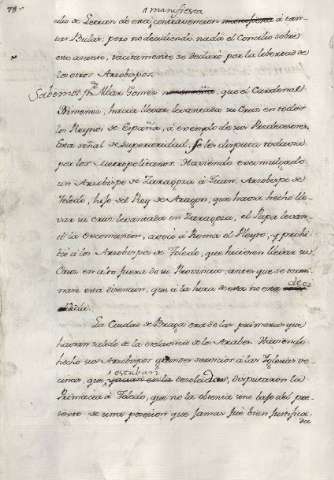 79.
manifiesta
cilio de Letran de esta contravencion manifiesta á tan-
tas Bulas, pero no decidiendo nada el Concilio sobre
este asunto, tacitamente se declaró por la libertad de
los otros Arzobispos.
Sabemos por Alvar Gomez que el Cardenal
Ximenez, hacia llevar levantada su Cruz en todos
los Reynos de España, á exemplo de sus Predecesores.
Esta señal de superioridad, se les disputa todavia
por los Metropolitanos. Haviendo excomulgado
un Arzobispo de Zaragoza á Juan, Arzobispo de
Toledo, hijo del Rey de Aragon, que havia hecho lle-
var su cruz levantada en Zaragoza, el Papa levan-
tó la excomunion, avocó á Roma el Pleyto, y prohi-
bió á los Arzobispos de Toledo, que hiciesen llevar su
Cruz en alto fuera de su Provincia, antes que se termi-
nase esta disension, que á la hora de esta no está
La Ciudad de Braga era de las primeras que
havian salido de la esclavitud de los Arabes. Haviendo
hecho sus Arzobispos grandes servicios á las Iglesias ve-
estaban
cinas que desoladas, disputaron la
Primacia á Toledo, que no la obtenia sino bajo del pre-
texto de una posesion que jamas fué bien justifica-
da